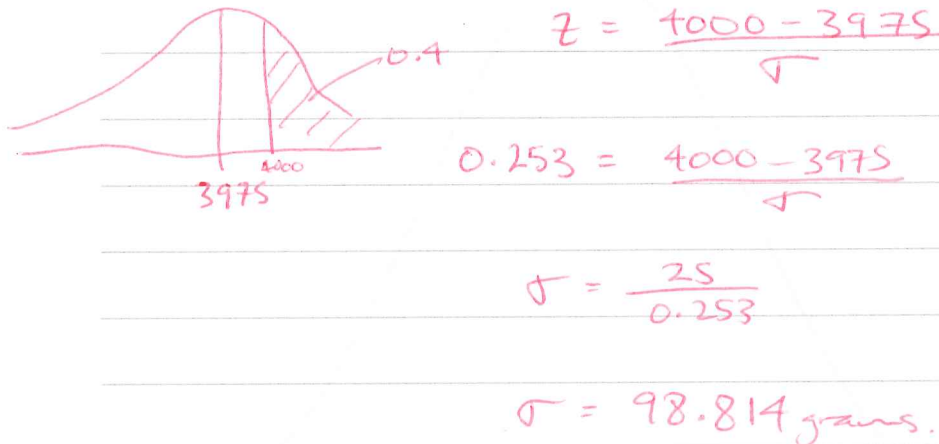 z = 4000 - 3975 / σ
0.4
4000
3975
0.253 = 4000 - 3975 / σ
σ = 25 / 0.253
σ = 98.814 grams.